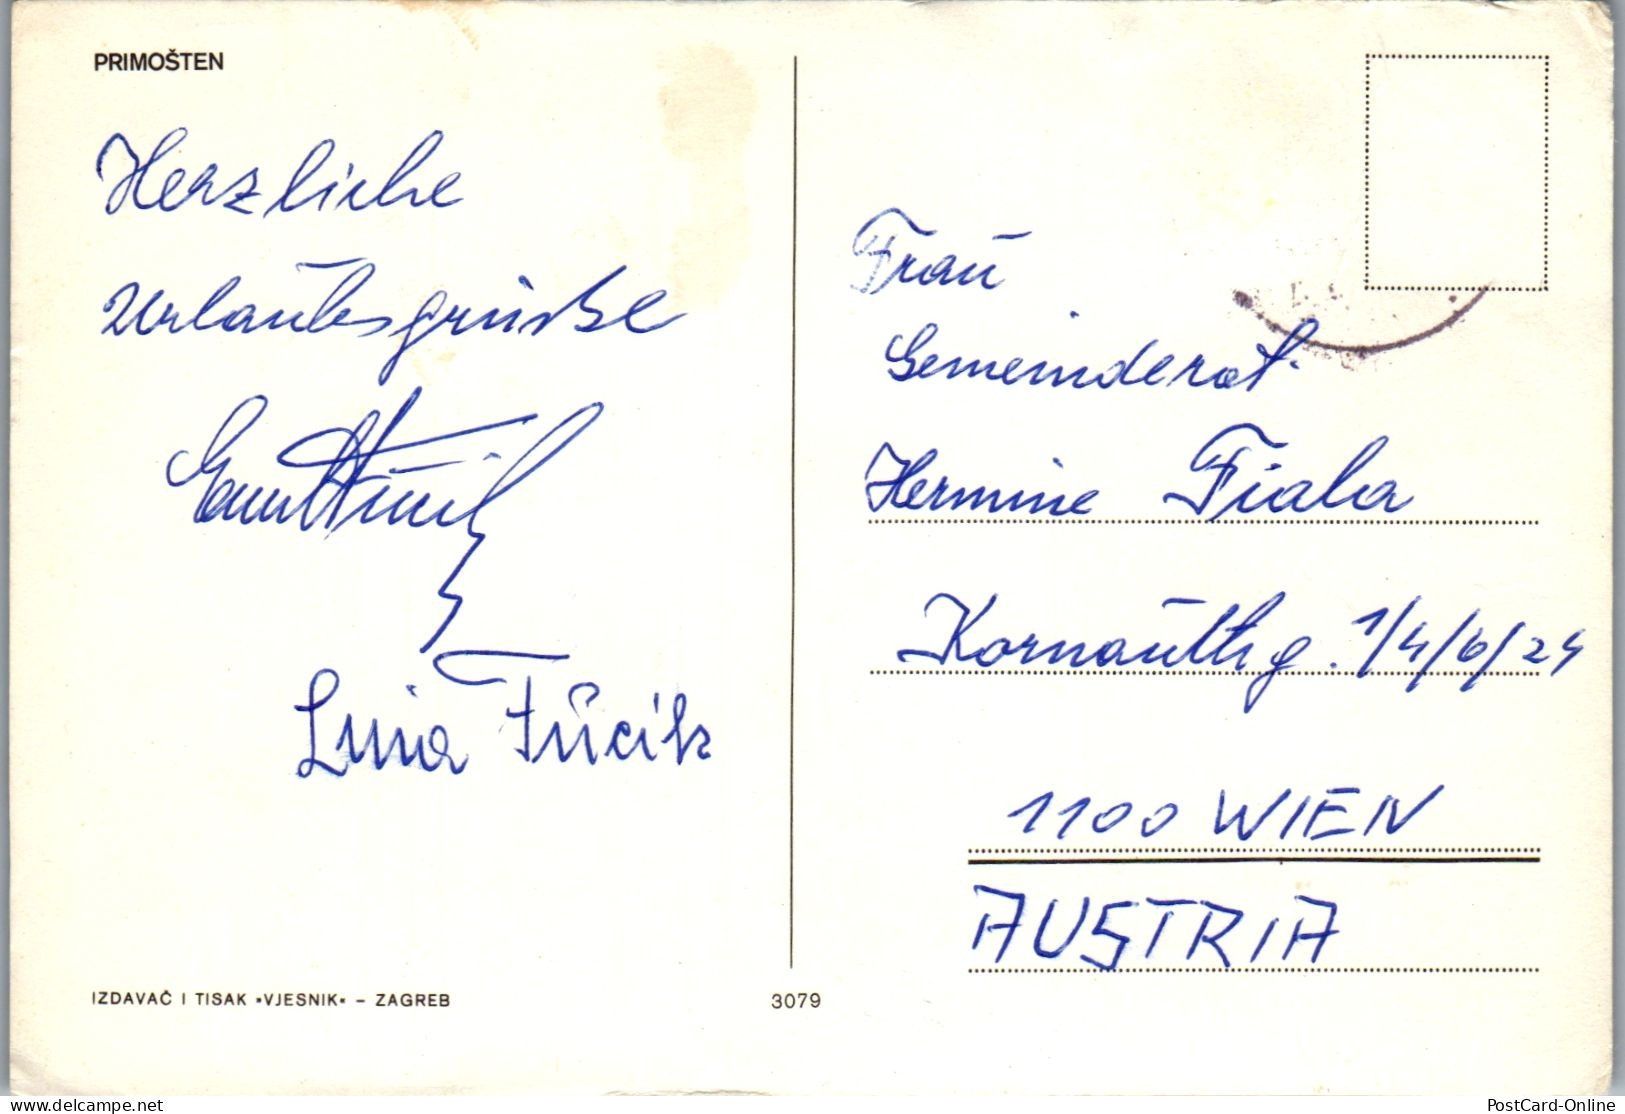 PRIMOŠTEN
Herzliche
Urlaubsgrüsse
Fučik
Frau
Gemeinderat
Hermine Fiala
Kornauthg. 1/4/6/24
1100 WIEN
AUSTRIA
IZDAVAČ I TISAK »VJESNIK« – ZAGREB
3079
the-delcampe.net
PostCard-Online